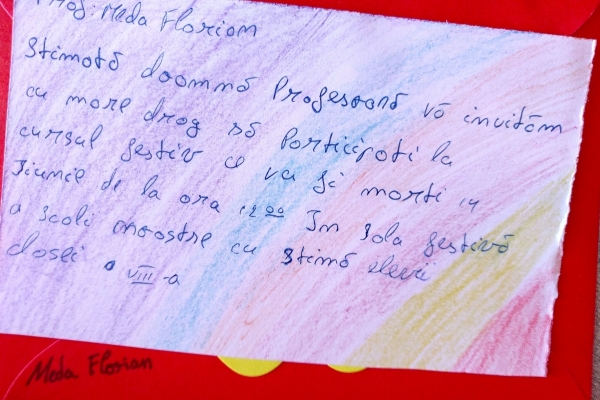 Prof: Meda Florian
Stimotă doomnă Profesoară vă invităm
cu more drog să Porticipoti la
cursul festiv ce va fi morti 14
Jiunie de la ora 12⁰⁰ In sola festivă
a scoli noostre cu stimă elevii
closei a VIII-a
Meda Florian